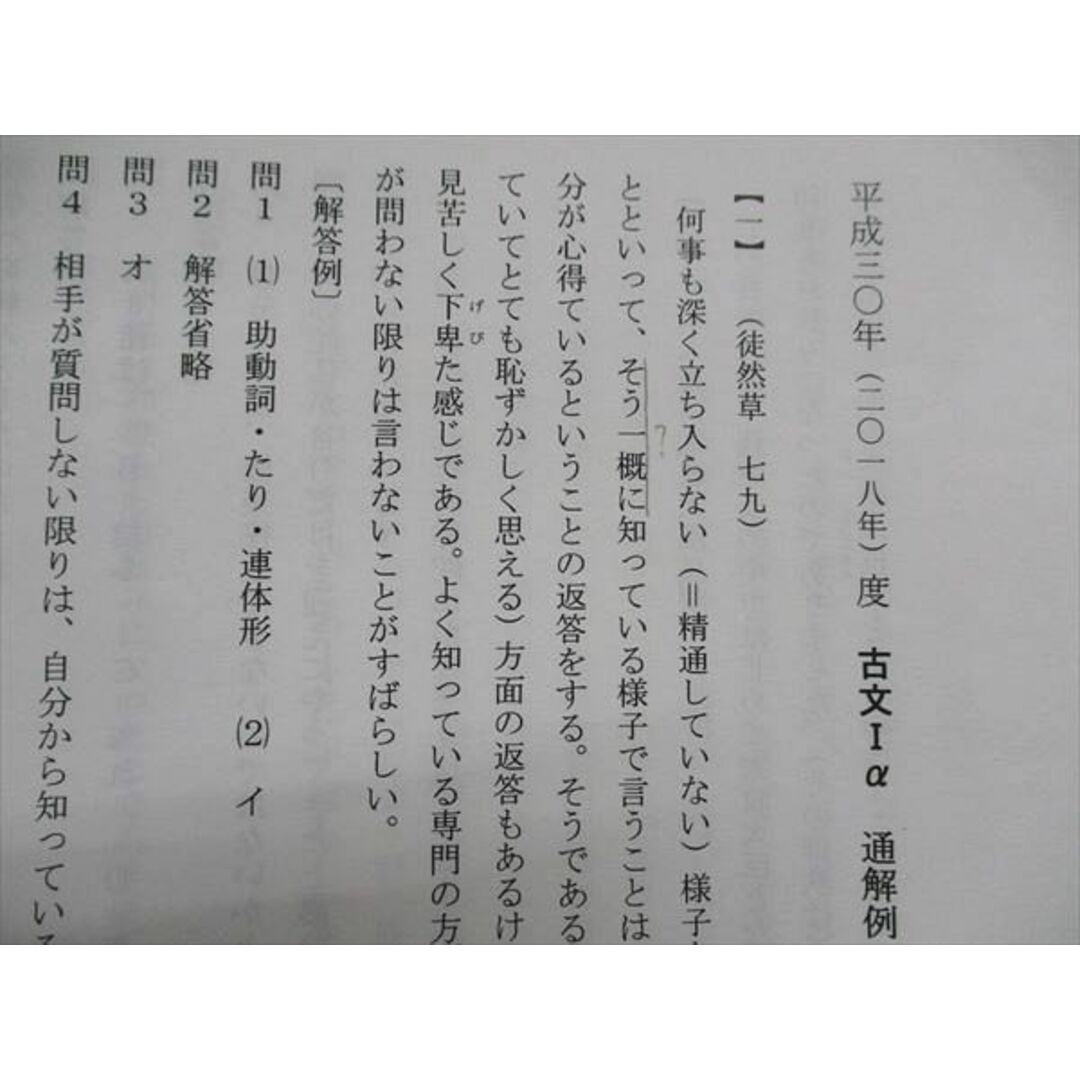 平成三〇年（二〇一八年）度 古文Ⅰα 通解例
【一】（徒然草 七九）
何事も深く立ち入らない（＝精通していない）様子
とといって、そう一概に知っている様子で言うことは
？
分が心得ているということの返答をする。そうである
ていてとても恥ずかしく思える）方面の返答もあるけ
見苦しく下卑た感じである。よく知っている専門の方
げび
が問わない限りは言わないことがすばらしい。
〔解答例〕
問１ (1) 助動詞・たり・連体形 (2) イ
問２ 解答省略
問３ オ
問４ 相手が質問しない限りは、自分から知ってい